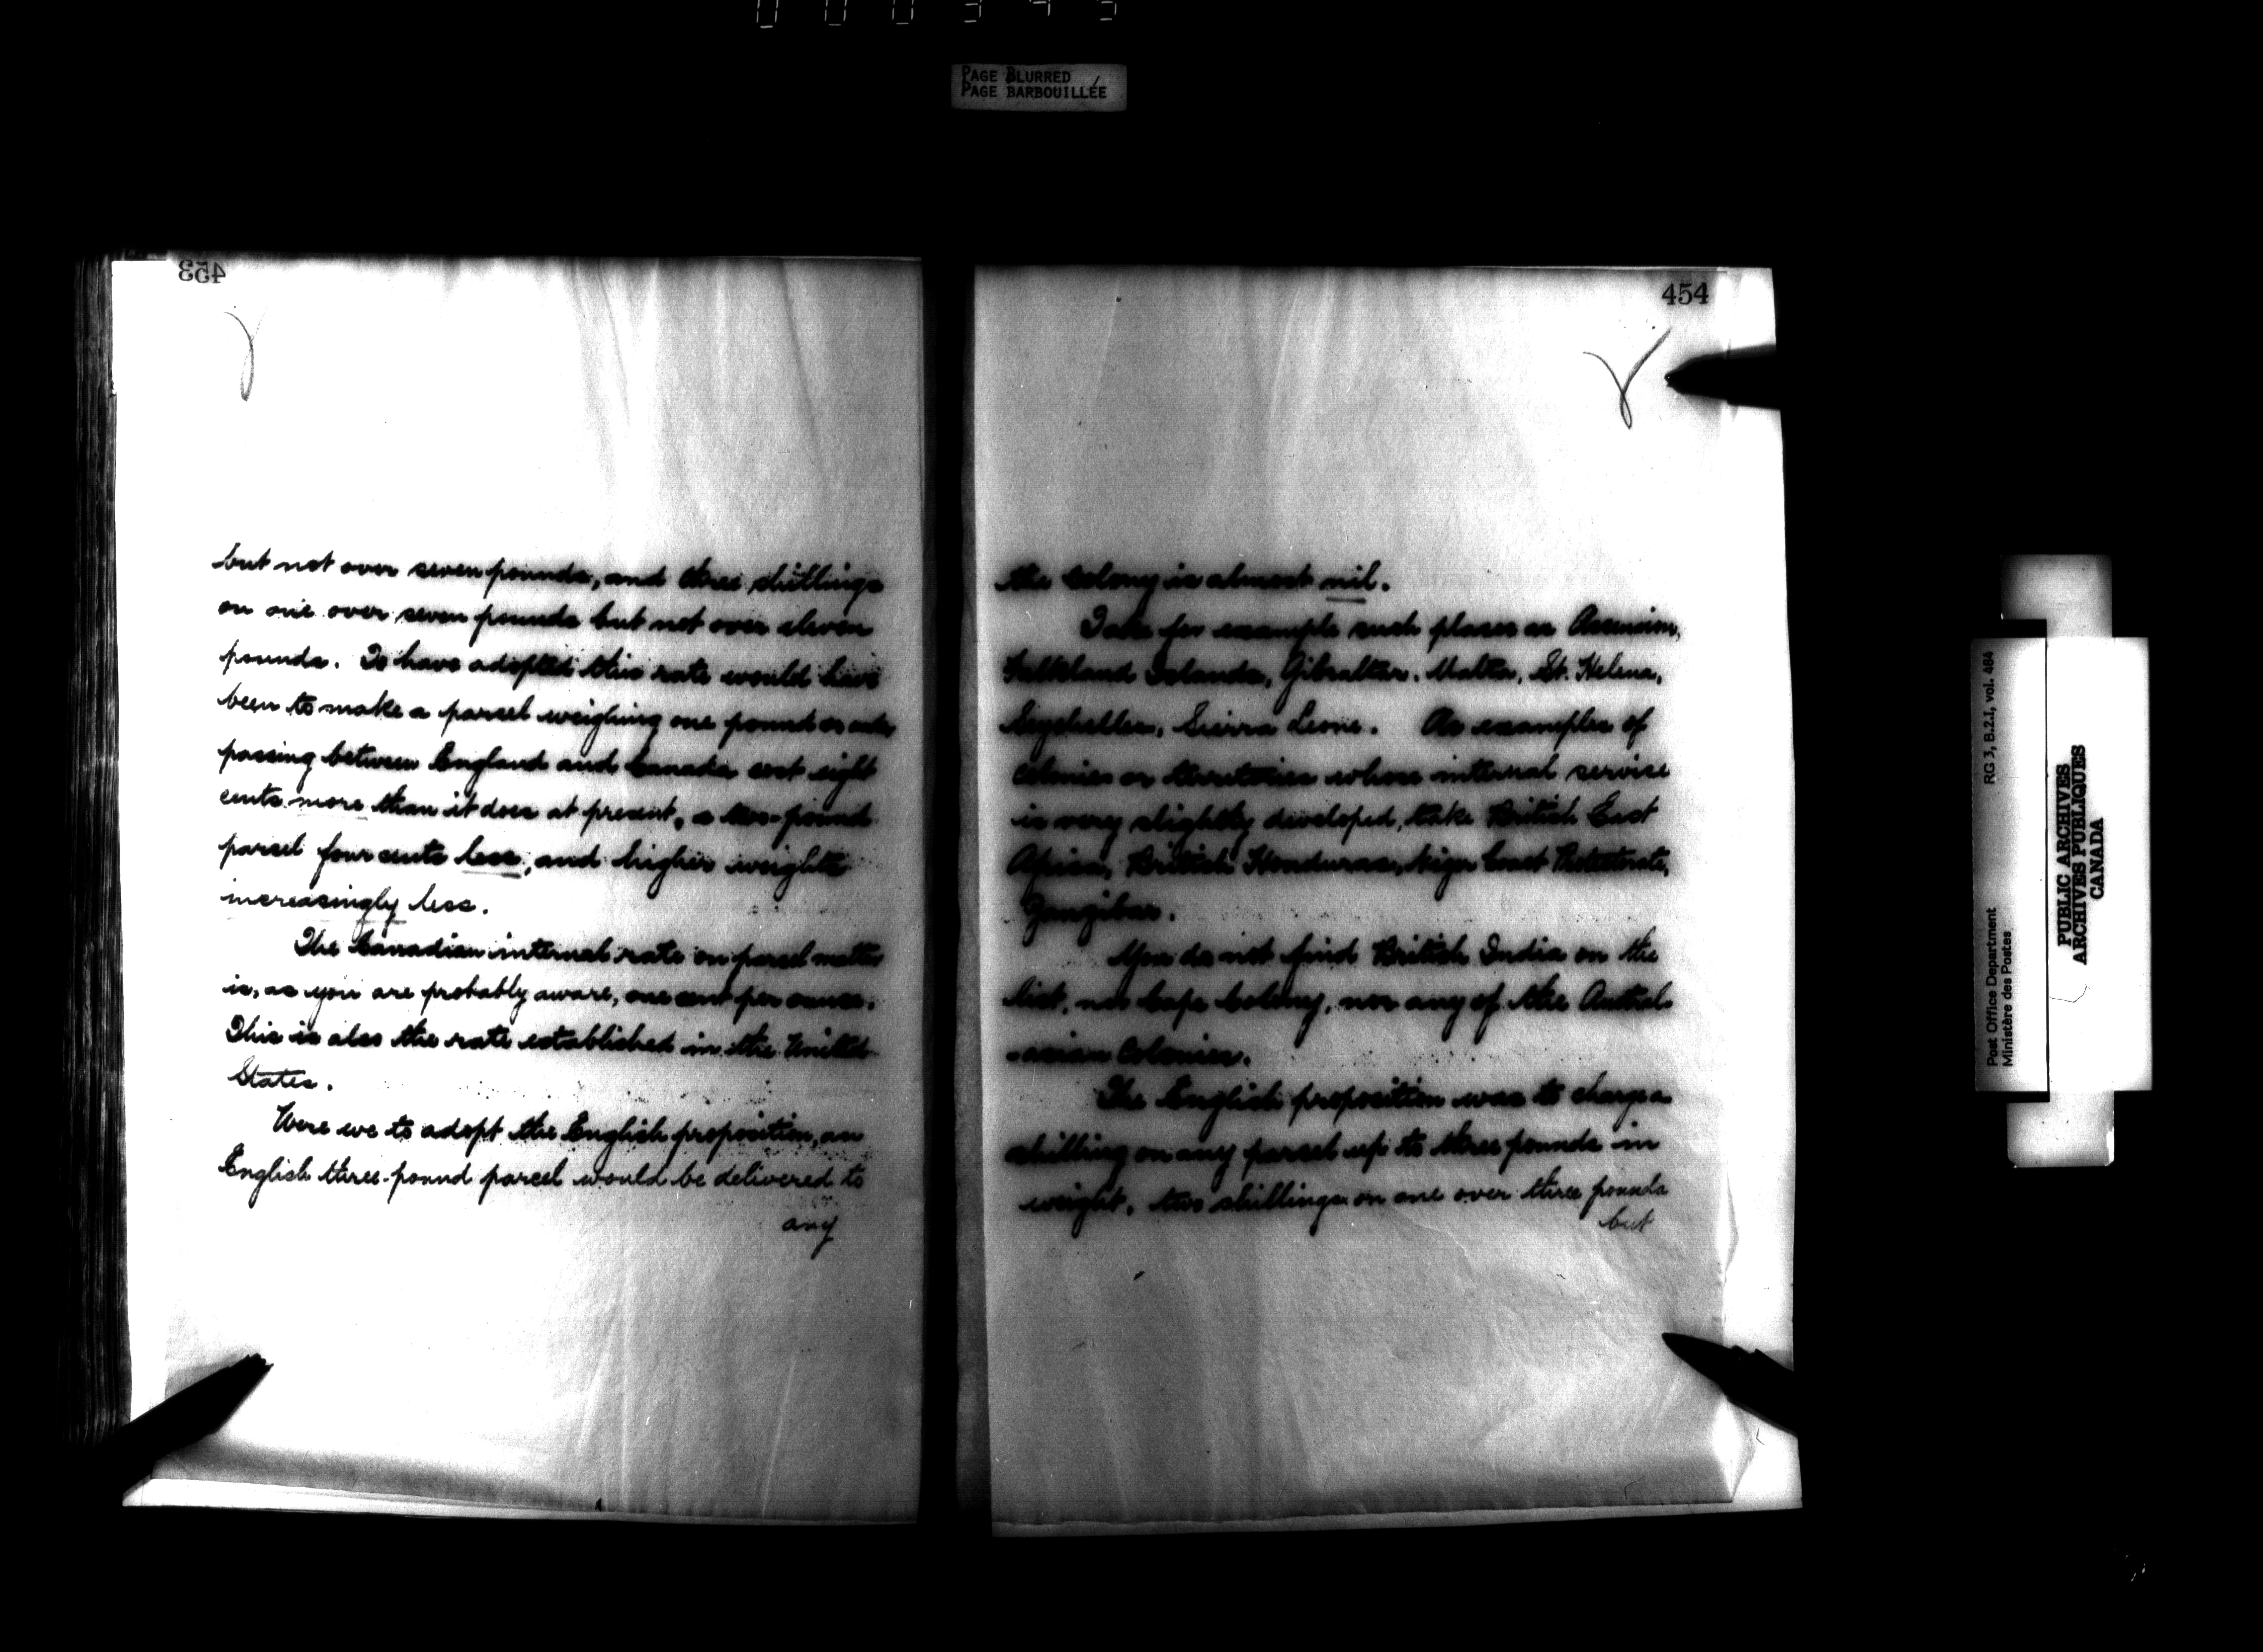 PAGE BLURRED
PAGE BARBOUILLÉE
453
but not over seven pounds, and three shillings
on one over seven pounds but not over eleven
pounds. To have adopted this rate would have
been to make a parcel weighing one pound or under
passing between England and Canada cost eight
cents more than it does at present, a two-pound
parcel four cents less, and higher weights
increasingly less.
The Canadian internal rate on parcel matter
is, as you are probably aware, one cent per ounce.
This is also the rate established in the United
States.
Were we to adopt the English proposition, an
English three-pound parcel would be delivered to
any
454
the Colony is almost nil.
Take for example such places as Ascension,
Falkland Islands, Gibraltar, Malta, St. Helena,
Seychelles, Sierra Leone. As examples of
Colonies or territories whose internal service
is very slightly developed, take British East
Africa, British Honduras, Niger Coast Protectorate,
Zanzibar.
You do not find British India on the
list, nor Cape Colony, nor any of the Austral-
-asian Colonies.
The English proposition was to charge a
shilling on any parcel up to three pounds in
weight, two shillings on one over three pounds
but
Post Office Department
Ministère des Postes
RG 3, B.2.I, vol. 484
PUBLIC ARCHIVES
ARCHIVES PUBLIQUES
CANADA